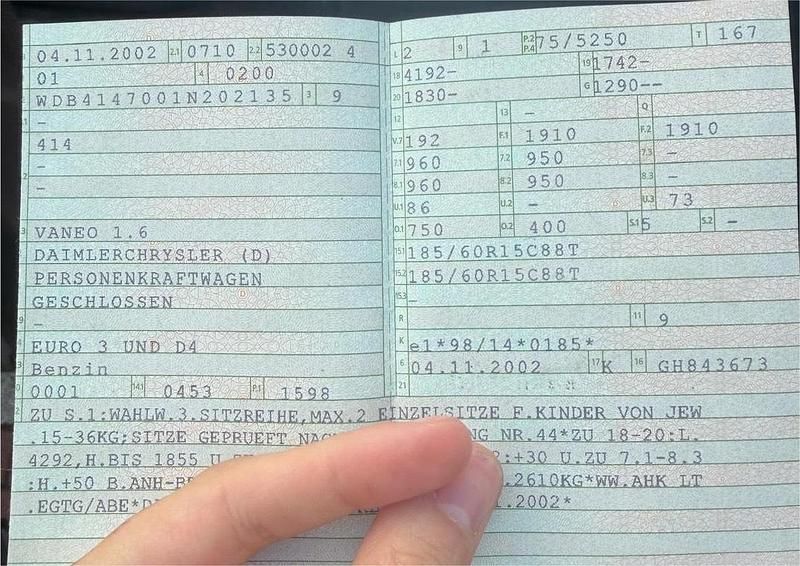 04.11.2002 2.1 0710 2.2 530002 4
01 4 0200
WDB4147001N202135 3 9
-
414
-
-
VANEO 1.6
DAIMLERCHRYSLER (D)
PERSONENKRAFTWAGEN
GESCHLOSSEN
-
EURO 3 UND D4
Benzin
0001 14.1 0453 P.1 1598
L 2 9 1 P.2 P.4 75/5250 T 167
18 4192- 19 1742-
20 1830- G 1290--
12 13 - Q
V.7 192 F.1 1910 F.2 1910
7.1 960 7.2 950 7.3 -
8.1 960 8.2 950 8.3 -
U.1 86 U.2 - U.3 73
O.1 750 O.2 400 S.1 5 S.2 -
15.1 185/60R15C88T
15.2 185/60R15C88T
15.3 -
R 11 9
K e1*98/14*0185*
6 04.11.2002 17 K 16 GH843673
21
ZU S.1:WAHLW.3.SITZREIHE,MAX.2 EINZELSITZE F.KINDER VON JEW
.15-36KG;SITZE GEPRUEFT NG NR.44*ZU 18-20:L.
4292,H.BIS 1855 U :+30 U.ZU 7.1-8.3
:H.+50 B.ANH .2610KG*WW.AHK LT
.EGTG/ABE* .2002*